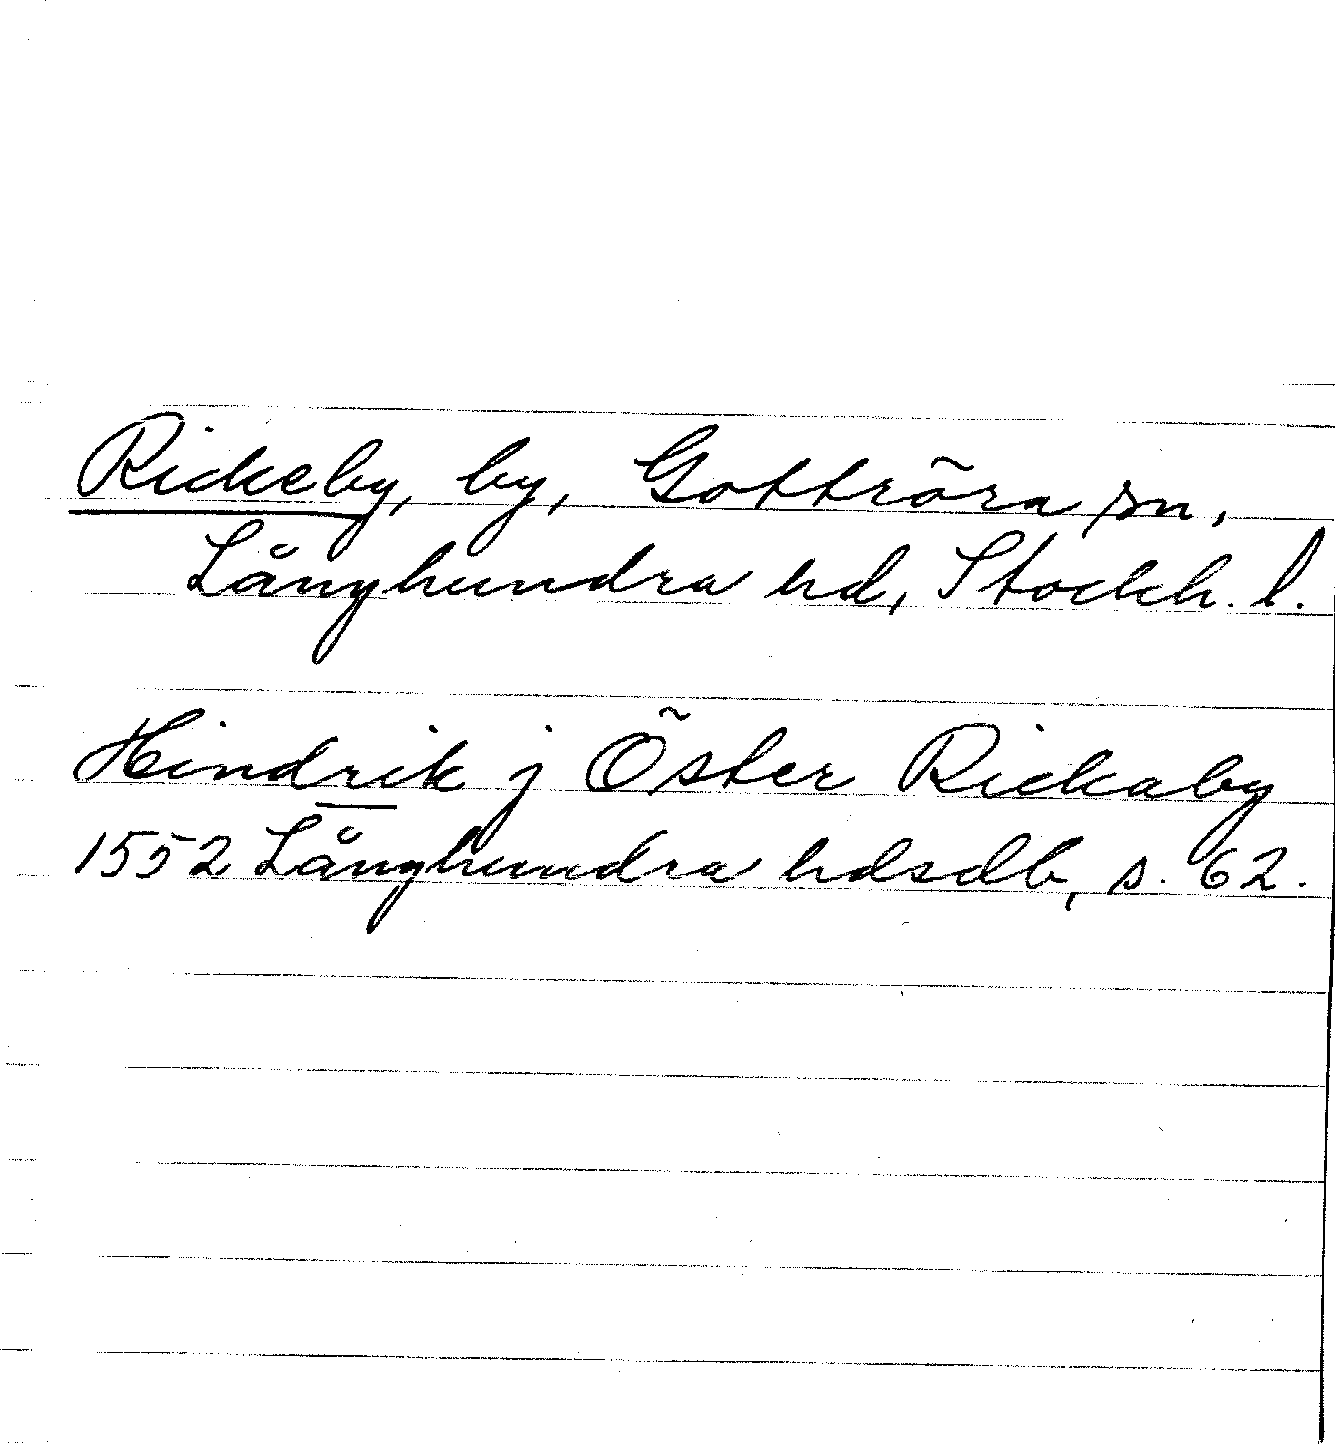 Rickeby, by, Gottröra sn,
Långhundra hd, Stockh. l.
Hindrik j Öster Rickaby
1552 Långhundra hdsdb, s. 62.